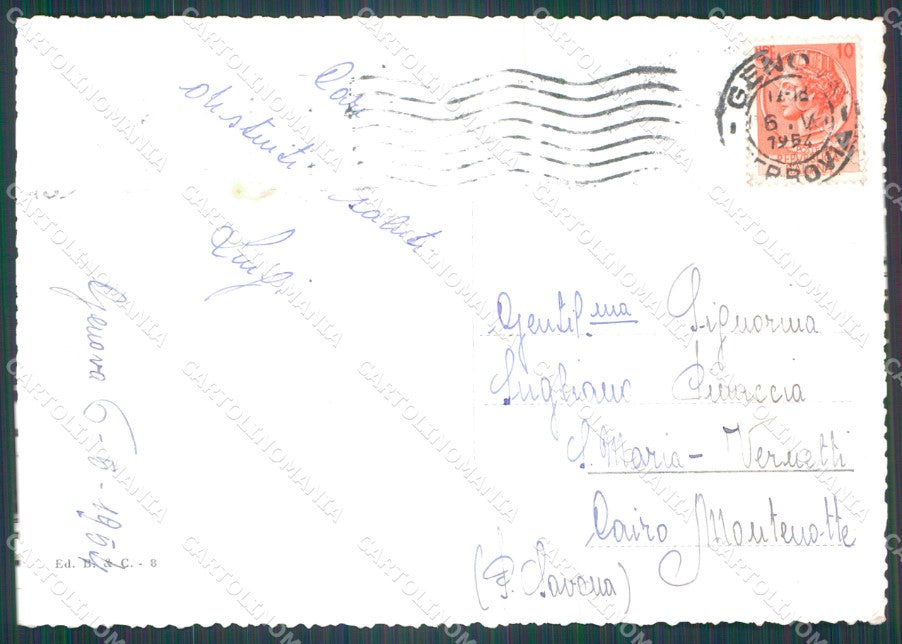 Cari
distinti
saluti.
Luigi
Genova 6-6-1954
Ed. D. & C. - 8
10
GENO
17-18
6. V
1954
FERROVIA
Gentil.ma Signorina
S. Maria - Vernetti
Cairo Montenotte
(P. Savona)
CARTOLINOMANIA